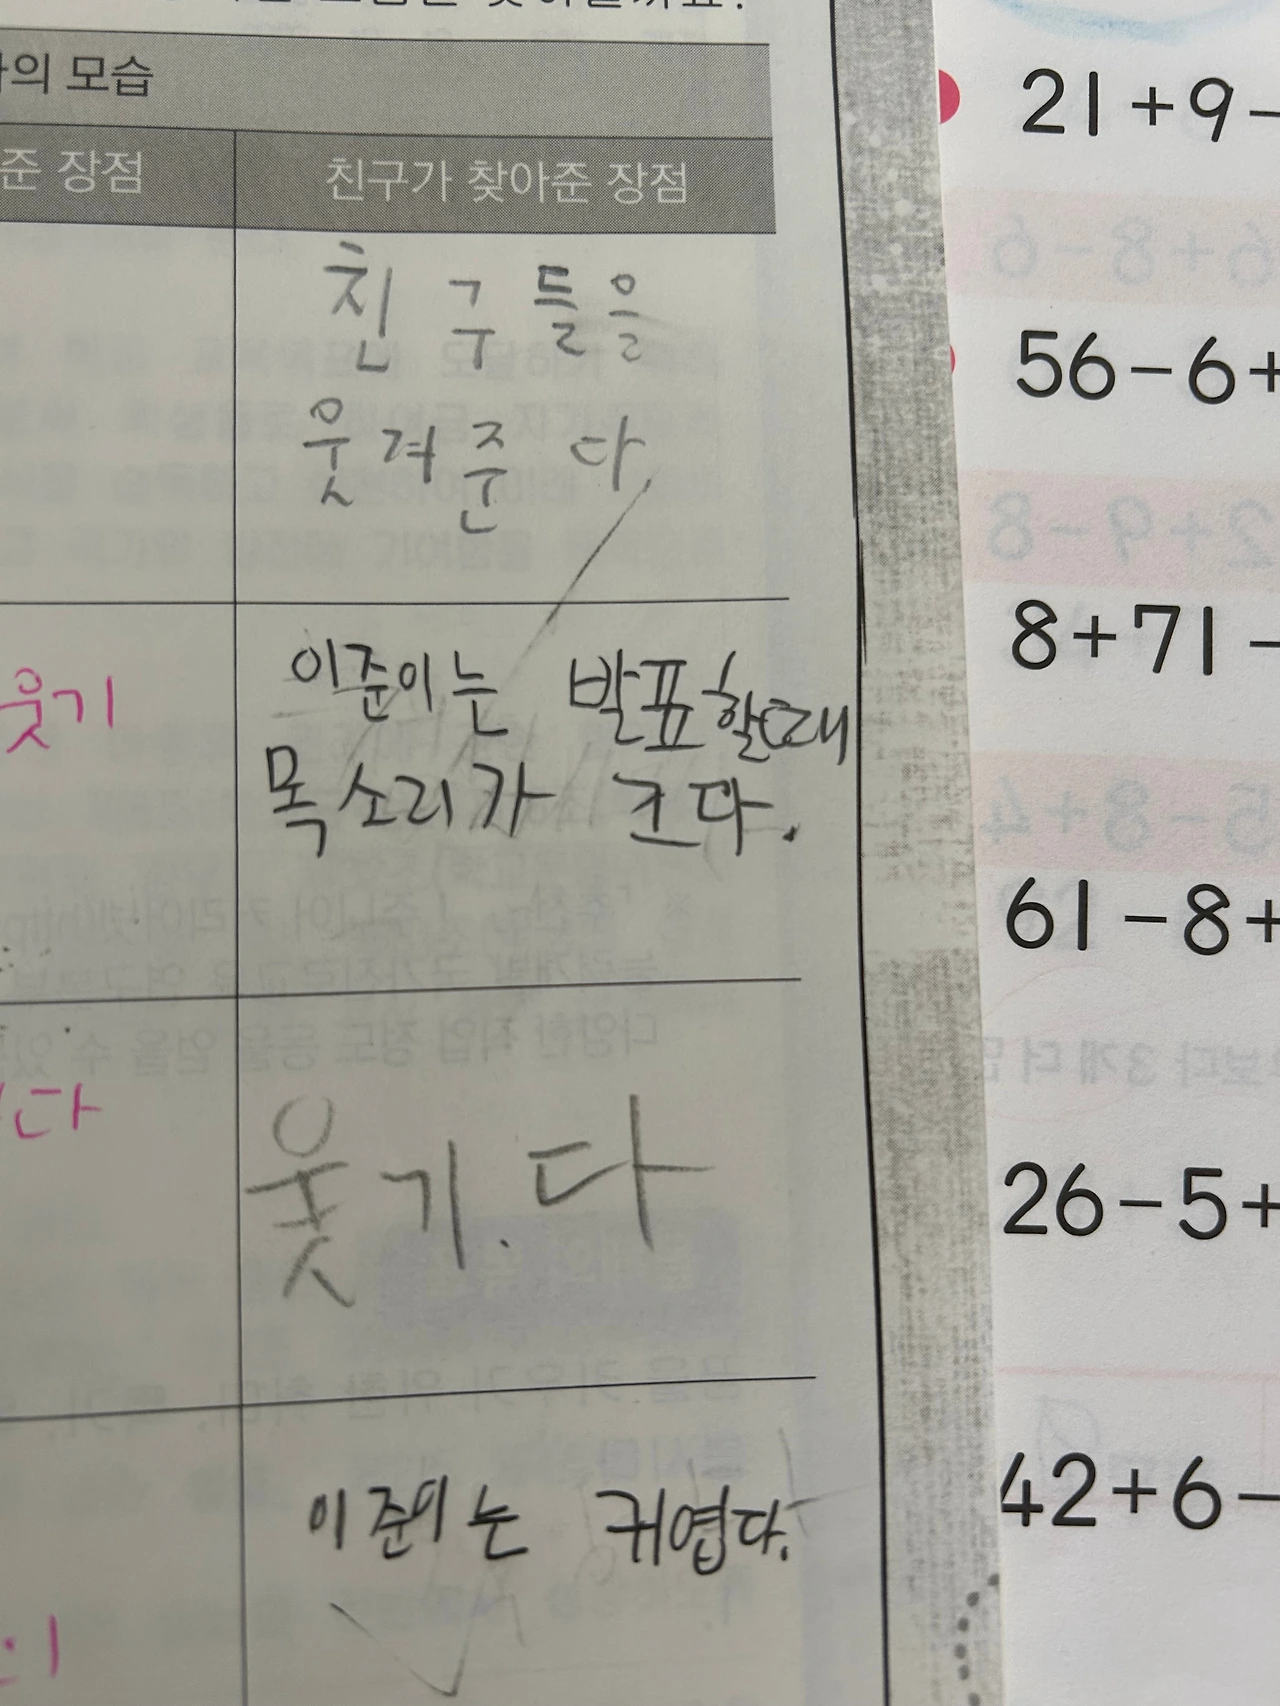 의 모습
준 장점
친구가 찾아준 장점
친구들을
웃겨준다
웃기
이준이는 발표할때
목소리가 크다.
다
웃기.다
이준이는 귀엽다.
21+9-
56-6+
8+71-
61-8+
26-5+
42+6-